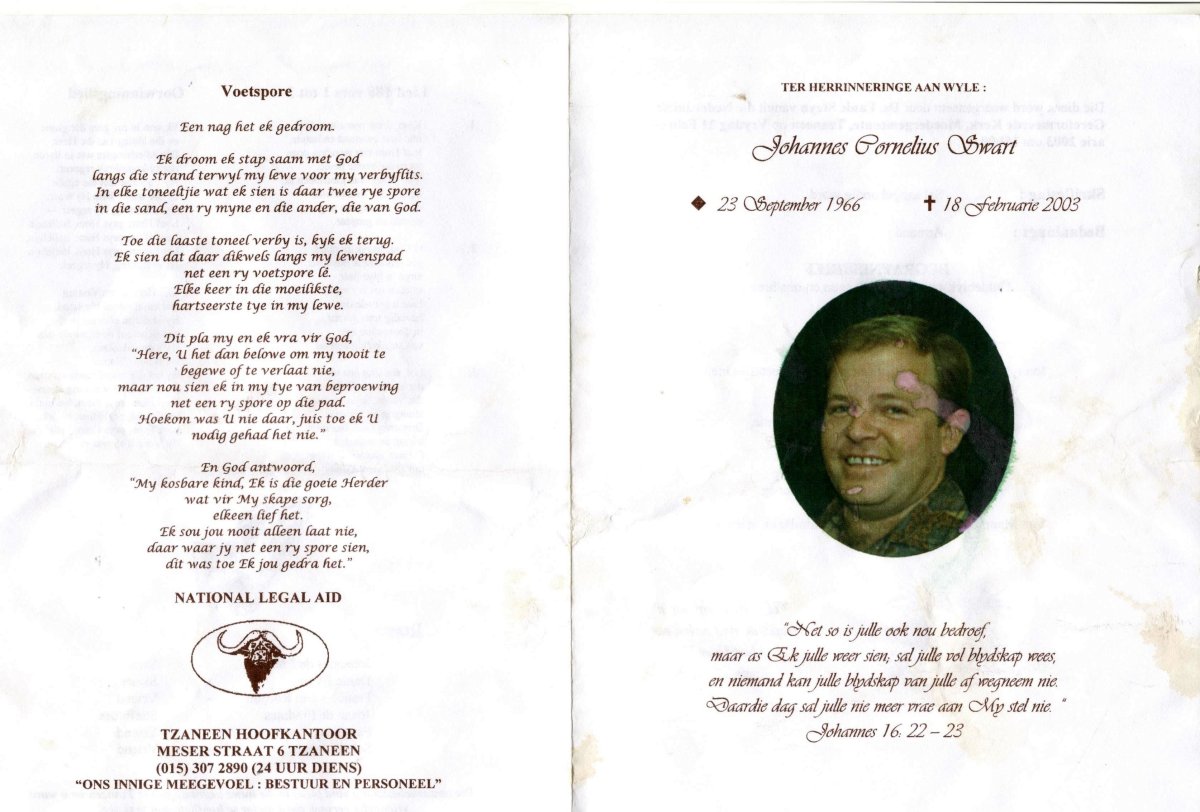 Voetspore
Een nag het ek gedroom.
Ek droom ek stap saam met God
langs die strand terwyl my lewe voor my verbyflits.
In elke toneeltjie wat ek sien is daar twee rye spore
in die sand, een ry myne en die ander, die van God.
Toe die laaste toneel verby is, kyk ek terug.
Ek sien dat daar dikwels langs my lewenspad
net een ry voetspore lê.
Elke keer in die moeilikste,
hartseerste tye in my lewe.
Dit pla my en ek vra vir God,
"Here, U het dan belowe om my nooit te
begewe of te verlaat nie,
maar nou sien ek in my tye van beproewing
net een ry spore op die pad.
Hoekom was U nie daar, juis toe ek U
nodig gehad het nie."
En God antwoord,
"My kosbare kind, Ek is die goeie Herder
wat vir My skape sorg,
elkeen lief het.
Ek sou jou nooit alleen laat nie,
daar waar jy net een ry spore sien,
dit was toe Ek jou gedra het."
NATIONAL LEGAL AID
TZANEEN HOOFKANTOOR
MESER STRAAT 6 TZANEEN
(015) 307 2890 (24 UUR DIENS)
"ONS INNIGE MEEGEVOEL : BESTUUR EN PERSONEEL"
TER HERRINNERINGE AAN WYLE :
Johannes Cornelius Swart
23 September 1966 ✝ 18 Februarie 2003
"Net so is julle ook nou bedroef,
maar as Ek julle weer sien; sal julle vol blydskap wees,
en niemand kan julle blydskap van julle af wegneem nie.
Daardie dag sal julle nie meer vrae aan My stel nie. "
Johannes 16: 22 – 23